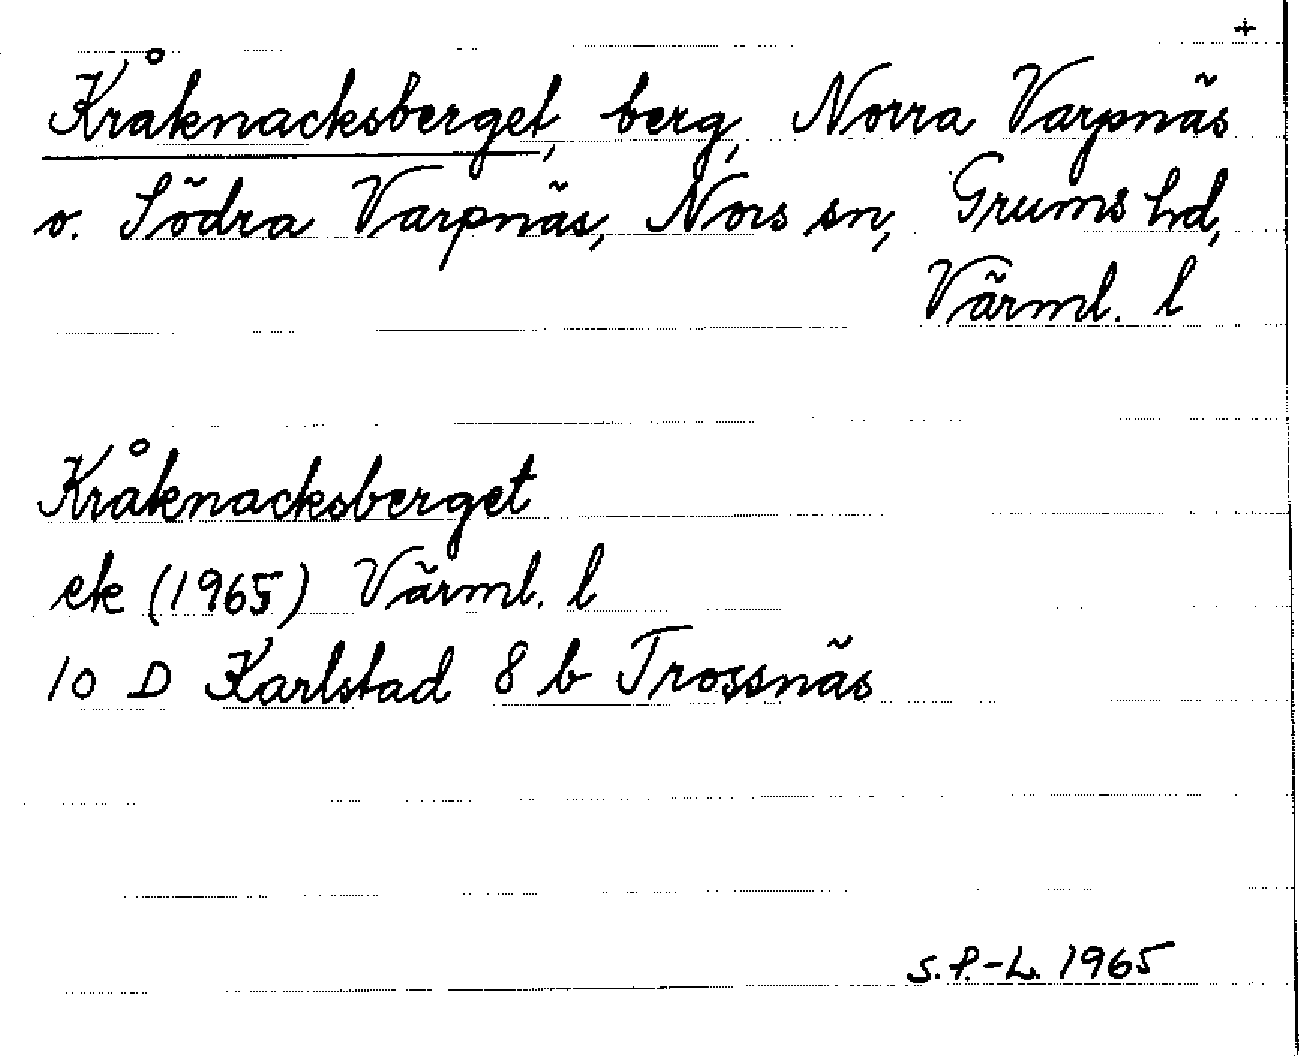 +
Kråknacksberget, berg, Norra Varpnäs
o. Södra Varpnäs, Nors sn, Grums hd,
Värml. l
Kråknacksberget
ek (1965) Värml. l
10 D Karlstad 8 b Trossnäs
S.P.-L. 1965